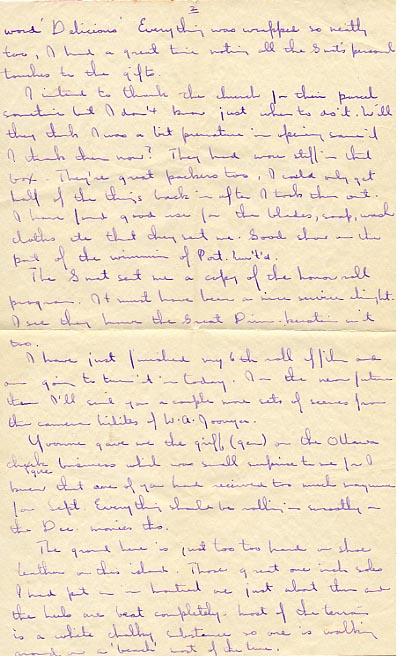 2
word 'Delicious' Everything was wrapped so neatly
too, I had a great time noting all the Smts personal
touches to the gifts.
I intend to thank the church for their parcel
sometime but I don't know just when to do it. Will
they think I was a bit premature in opening same if
I thank them now? They had more stuff in that
box. They're great packers too, I could only get
half of the things back in after I took them out.
I have found good use for the blades, soap, wash
cloths etc that they sent me. Good show on the
part of the women of Port.
The Smt sent me a copy of the honor roll
program. It must have been a nice service alright.
I see they have the Great in it
too.
I have just finished my 6th roll of film and
am going to turn it in today. In the near future
then I'll send you a couple more sets of scenes from
the camera of W.A.
Yvonne gave me the griff (gen) on the Ottawa
cheque business which was small surprise to me for I
knew that one of you had received too much
for Sept. Everything should be rolling in smoothly on
the Dec. tho.
The ground here is just too too hard on shoe
leather on this island. Those great one inch soles
I had put on in me just about thru and
the heels are beat completely. Most of the terrain
is a white chalky substance so one is walking
around on a 'beach' most of the time.